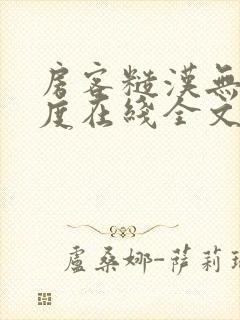 房客糙漢無
度在綫全文
盧桑娜-薩莉